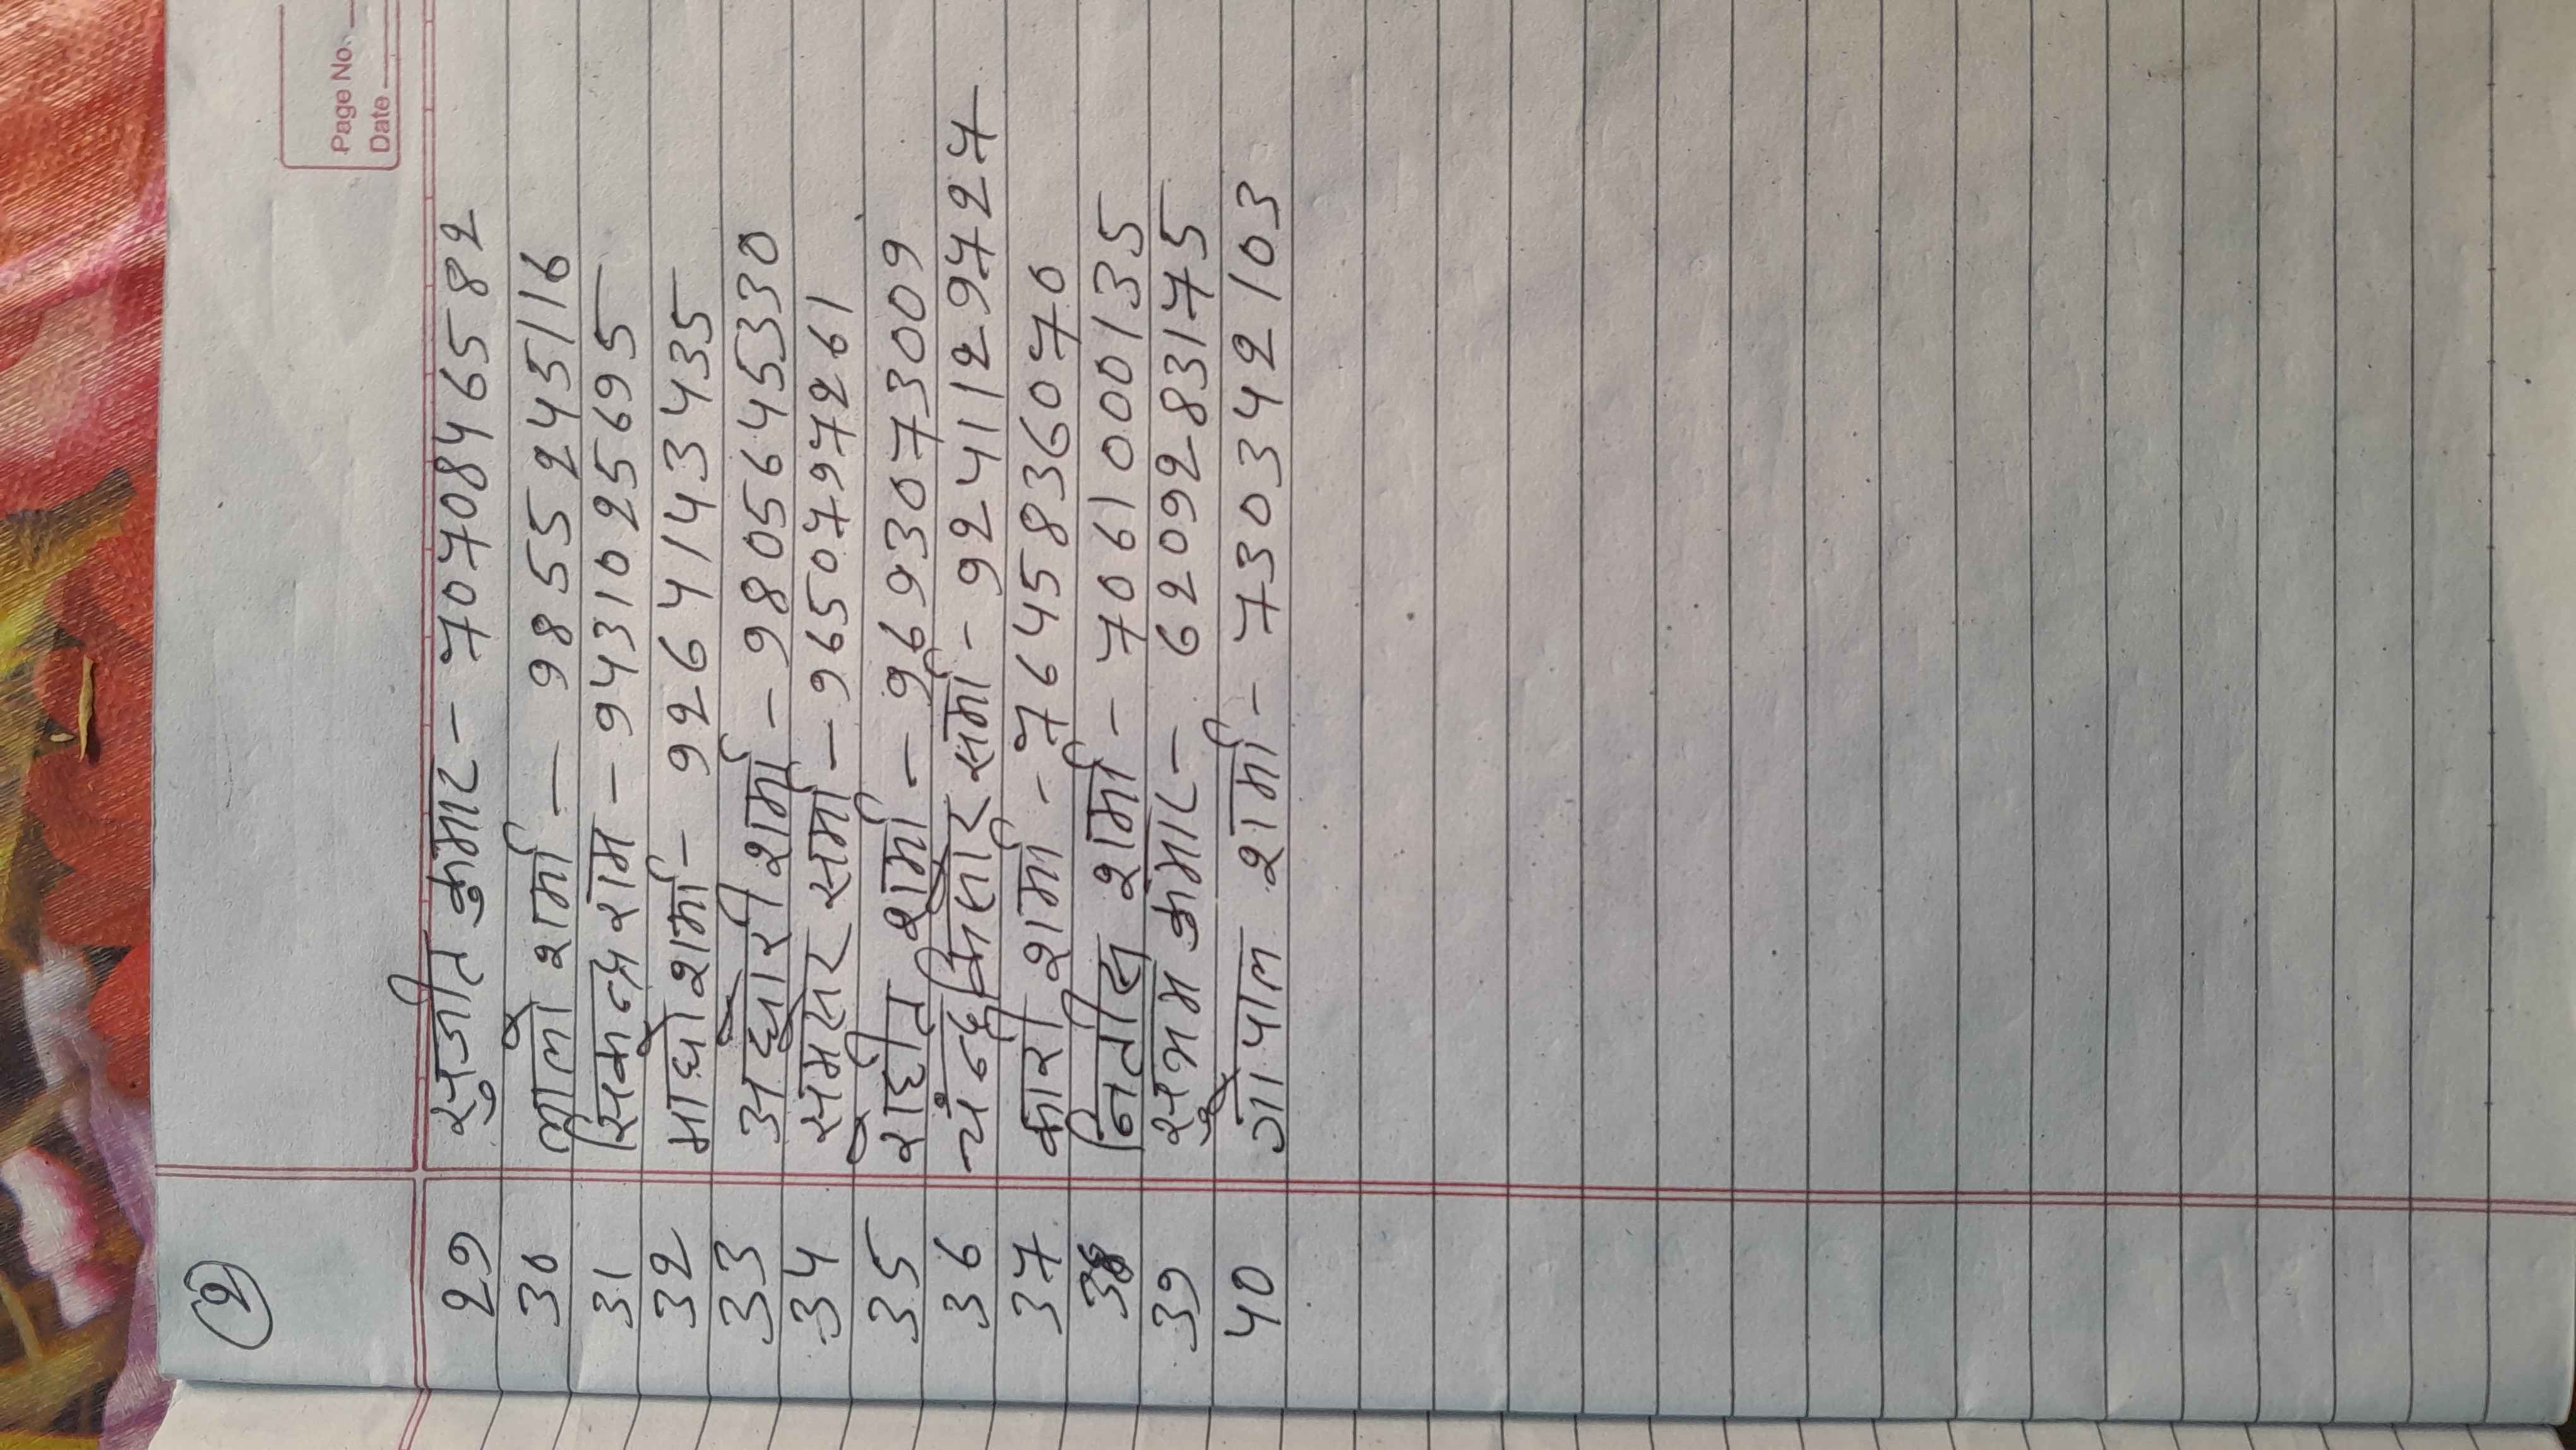 2
Page No.
Date
29 सुजीत कुमार - 7070846582
30 लालो शर्मा - 9855245116
31 सिकन्द्र राम - 9431025695
32 माघो शर्मा - 9264143435
33 अघोरी शर्मा - 9805645330
34 समसर समा - 9650797261
35 रोहीत शर्मा - 9693073009
36 चंन्द्रकिसोर समा - 9241129727
37 कारी शर्मा - 7645836070
38 नितीश शर्मा - 7061000135
39 सुभम कुमार - 6209283175
40 गोपाल शर्मा - 730342103